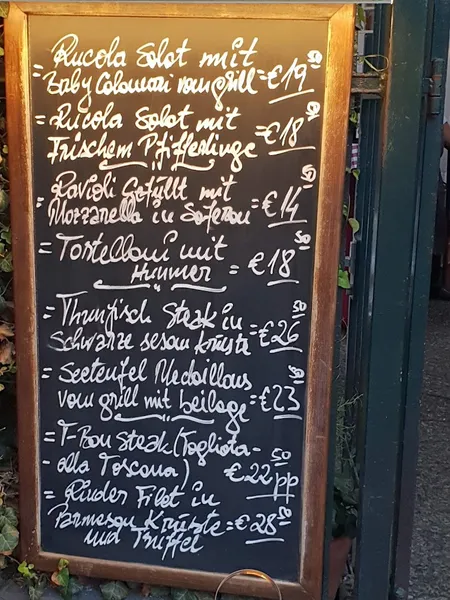 = Rucola Salat mit
Baby Calamari vom grill = €19 50
= Rucola Salat mit
Frischem Pfifferlinge €18 50
= Ravioli Gefüllt mit
Mozzarella in Saferan = €14 50
= Tortelloni mit
Hummer = €18 50
= Thunfisch Steak in
Schwarze sesam kruste = €26 50
= Seeteufel Medaillons
vom grill mit beilage = €23 50
= T-Bon Steak (Tagliata-
alla Toscana) €22 50 pp
= Rinder Filet in
Parmesan Kruste = €28 50
und Trüffel